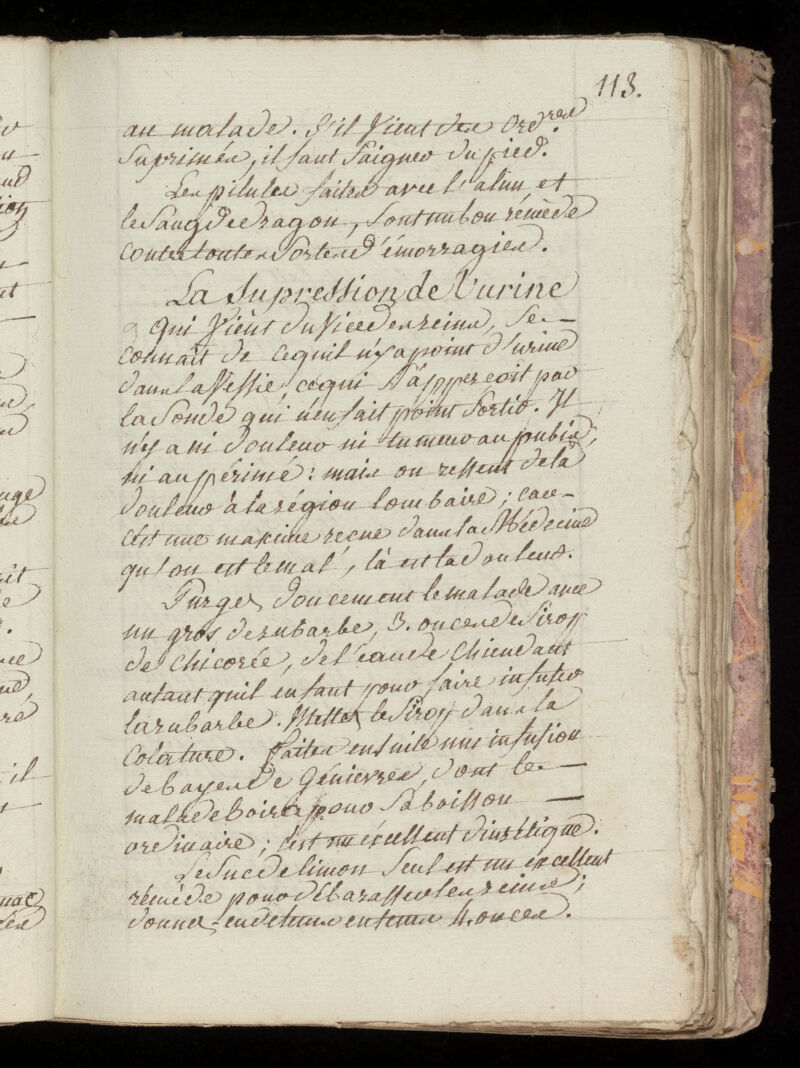 113.
au malade. S'il vient des Ord.res
suprimés, il faut saigner du pied.
Les pilules faites avec l'alun, et
le sang de dragon, sont un bon rémède
contre toutes sortes d'émorragies.
La Supression de l'urine
qui vient du vice des reins, se
connait de ce qu'il n'y a point d'urine
dans la vessie, ce qui s'apperçoit par
la sonde qui n'en fait point sortir. Il
n'y a ni douleur ni tumeur au pubis,
ni au périné: mais on ressent de la
douleur à la région lombaire; car
c'est une maxime reçue dans la Médecine
qu'ou est le mal, là est la douleur.
Purgez doucement le malade avec
un gros de rubarbe, 3. onces de sirop
de chicorée, de l'eau de chiendant
autant qu'il en faut pour faire infuser
la rubarbe. Mettez le sirop dans la
colature. faites ensuite une infusion
de bayes de génievres, dont le
malade boira pour sa boisson
ordinaire; c'est un excellent diurétique.
Le suc de limon seul est un excellent
rémède pour débarasser les reins;
donnez-en de tems en tems 4. onces.